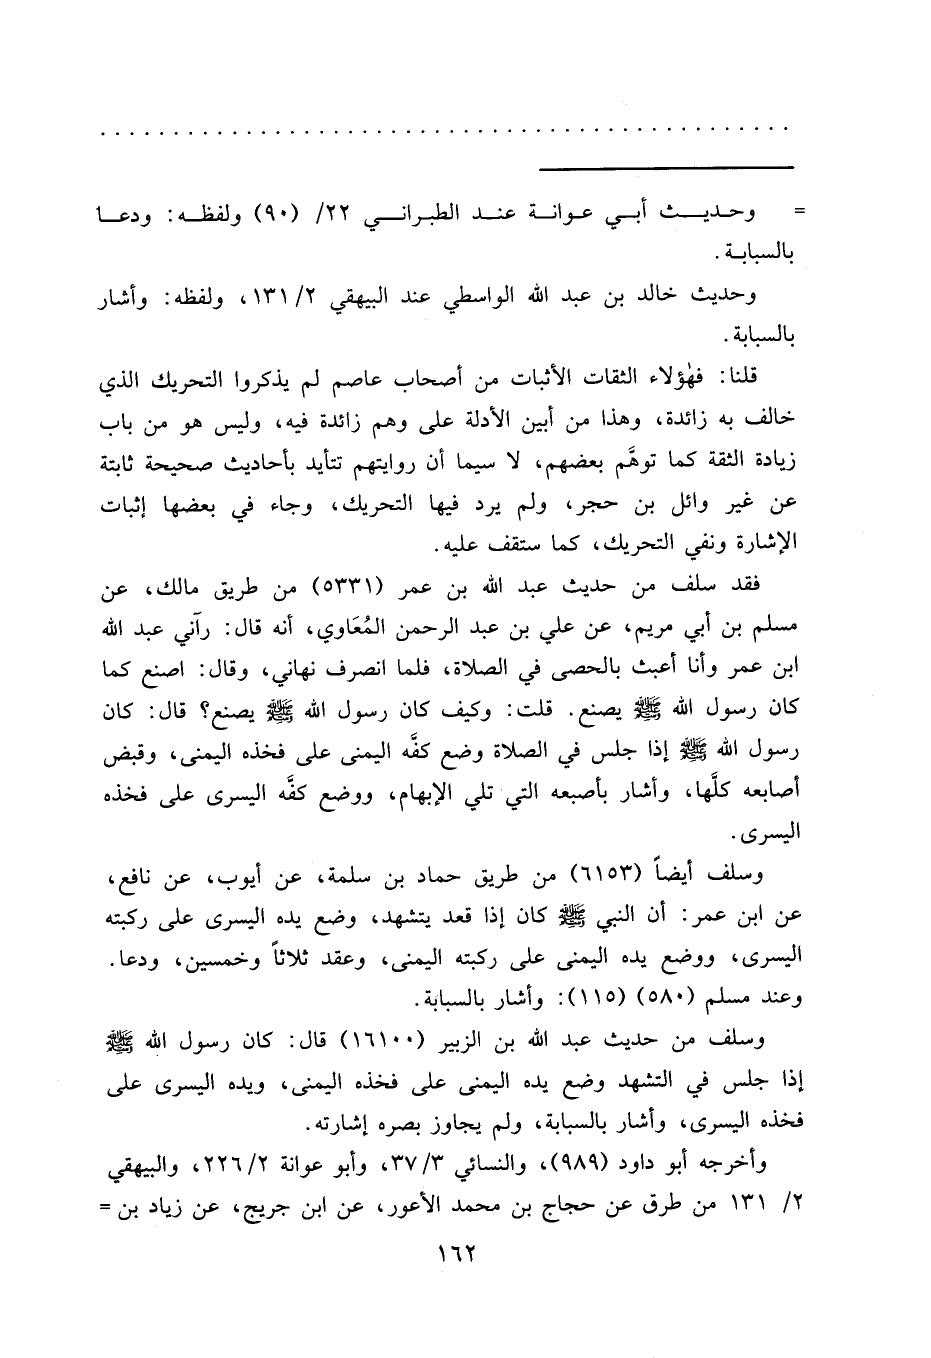 = وحديث أبي عوانة عند الطبراني ٢٢/ (٩٠) ولفظه: ودعا
بالسبابة.
وحديث خالد بن عبد الله الواسطي عند البيهقي ١٣١/٢، ولفظه: وأشار
بالسبابة.
قلنا: فهٰؤلاء الثقات الأثبات من أصحاب عاصم لم يذكروا التحريك الذي
خالف به زائدة، وهذا من أبين الأدلة على وهم زائدة فيه، وليس هو من باب
زيادة الثقة كما توهَّم بعضهم، لا سيما أن روايتهم تتأيد بأحاديث صحيحة ثابتة
عن غير وائل بن حجر، ولم يرد فيها التحريك، وجاء في بعضها إثبات
الإشارة ونفي التحريك، كما ستقف عليه.
فقد سلف من حديث عبد الله بن عمر (٥٣٣١) من طريق مالك، عن
مسلم بن أبي مريم، عن علي بن عبد الرحمن المُعَاوي، أنه قال: رآني عبد الله
ابن عمر وأنا أعبث بالحصى في الصلاة، فلما انصرف نهاني، وقال: اصنع كما
كان رسول الله ﷺ يصنع. قلت: وكيف كان رسول الله ﷺ يصنع؟ قال: كان
رسول الله ﷺ إذا جلس في الصلاة وضع كفَّه اليمنى على فخذه اليمنى، وقبض
أصابعه كلَّها، وأشار بأصبعه التي تلي الإبهام، ووضع كفَّه اليسرى على فخذه
اليسرى.
وسلف أيضاً (٦١٥٣) من طريق حماد بن سلمة، عن أيوب، عن نافع،
عن ابن عمر: أن النبي ﷺ كان إذا قعد يتشهد، وضع يده اليسرى على ركبته
اليسرى، ووضع يده اليمنى على ركبته اليمنى، وعقد ثلاثاً وخمسين، ودعا.
وعند مسلم (٥٨٠) (١١٥): وأشار بالسبابة.
وسلف من حديث عبد الله بن الزبير (١٦١٠٠) قال: كان رسول الله ﷺ
إذا جلس في التشهد وضع يده اليمنى على فخذه اليمنى، ويده اليسرى على
فخذه اليسرى، وأشار بالسبابة، ولم يجاوز بصره إشارته.
وأخرجه أبو داود (٩٨٩)، والنسائي ٣٧/٣، وأبو عوانة ٢٢٦/٢، والبيهقي
٢/ ١٣١ من طرق عن حجاج بن محمد الأعور، عن ابن جريج، عن زياد بن =
١٦٢